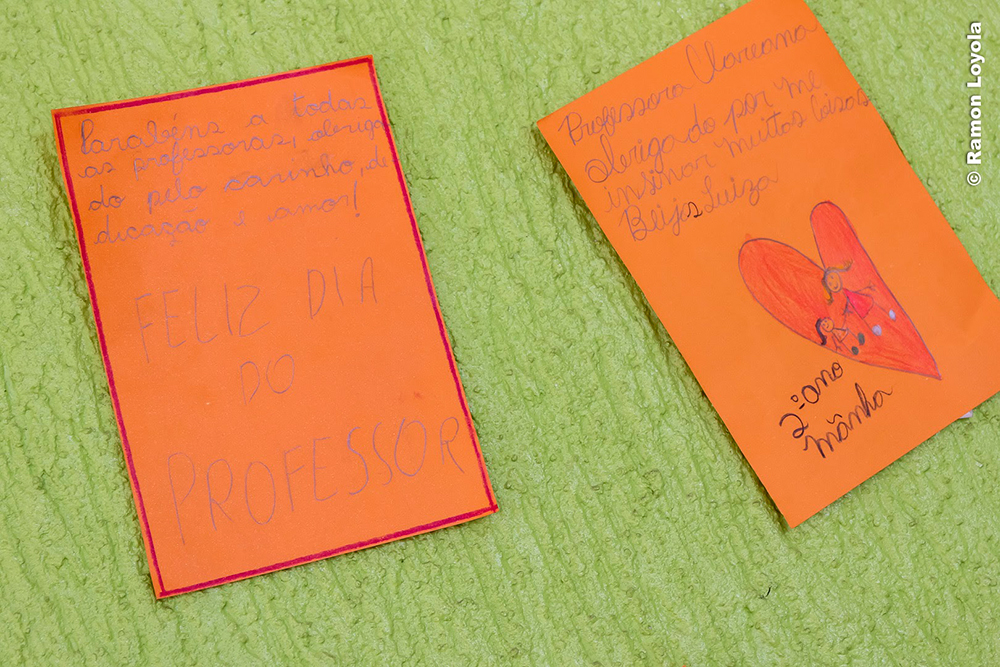 Parabéns a todas
as professoras, obriga
do pelo carinho, de
dicação e amor!
FELIZ DIA
DO
PROFESSOR
Professora
obrigado por me
insinar muitas coisas
Beijos Luiza
2º ano
mãnha
© Ramon Loyola